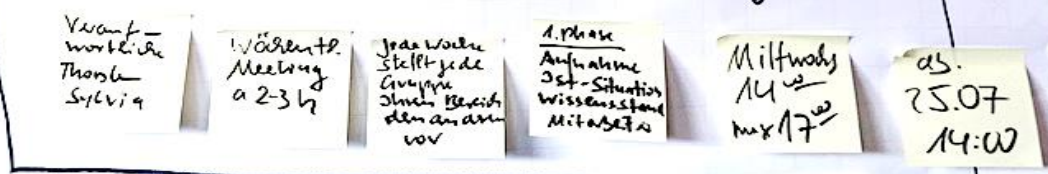 Verant-
wortliche
Thorsten
Sylvia
Wöchentl.
Meeting
a 2-3 h
jede Woche
stellt jede
Gruppe
ihren Bereich
den andren
vor
1. Phase
Aufnahme
Ist-Situation
Wissensstand
Mitarbeiter
Mittwochs
14⁰⁰
max 17⁰⁰
ab.
25.07
14:00